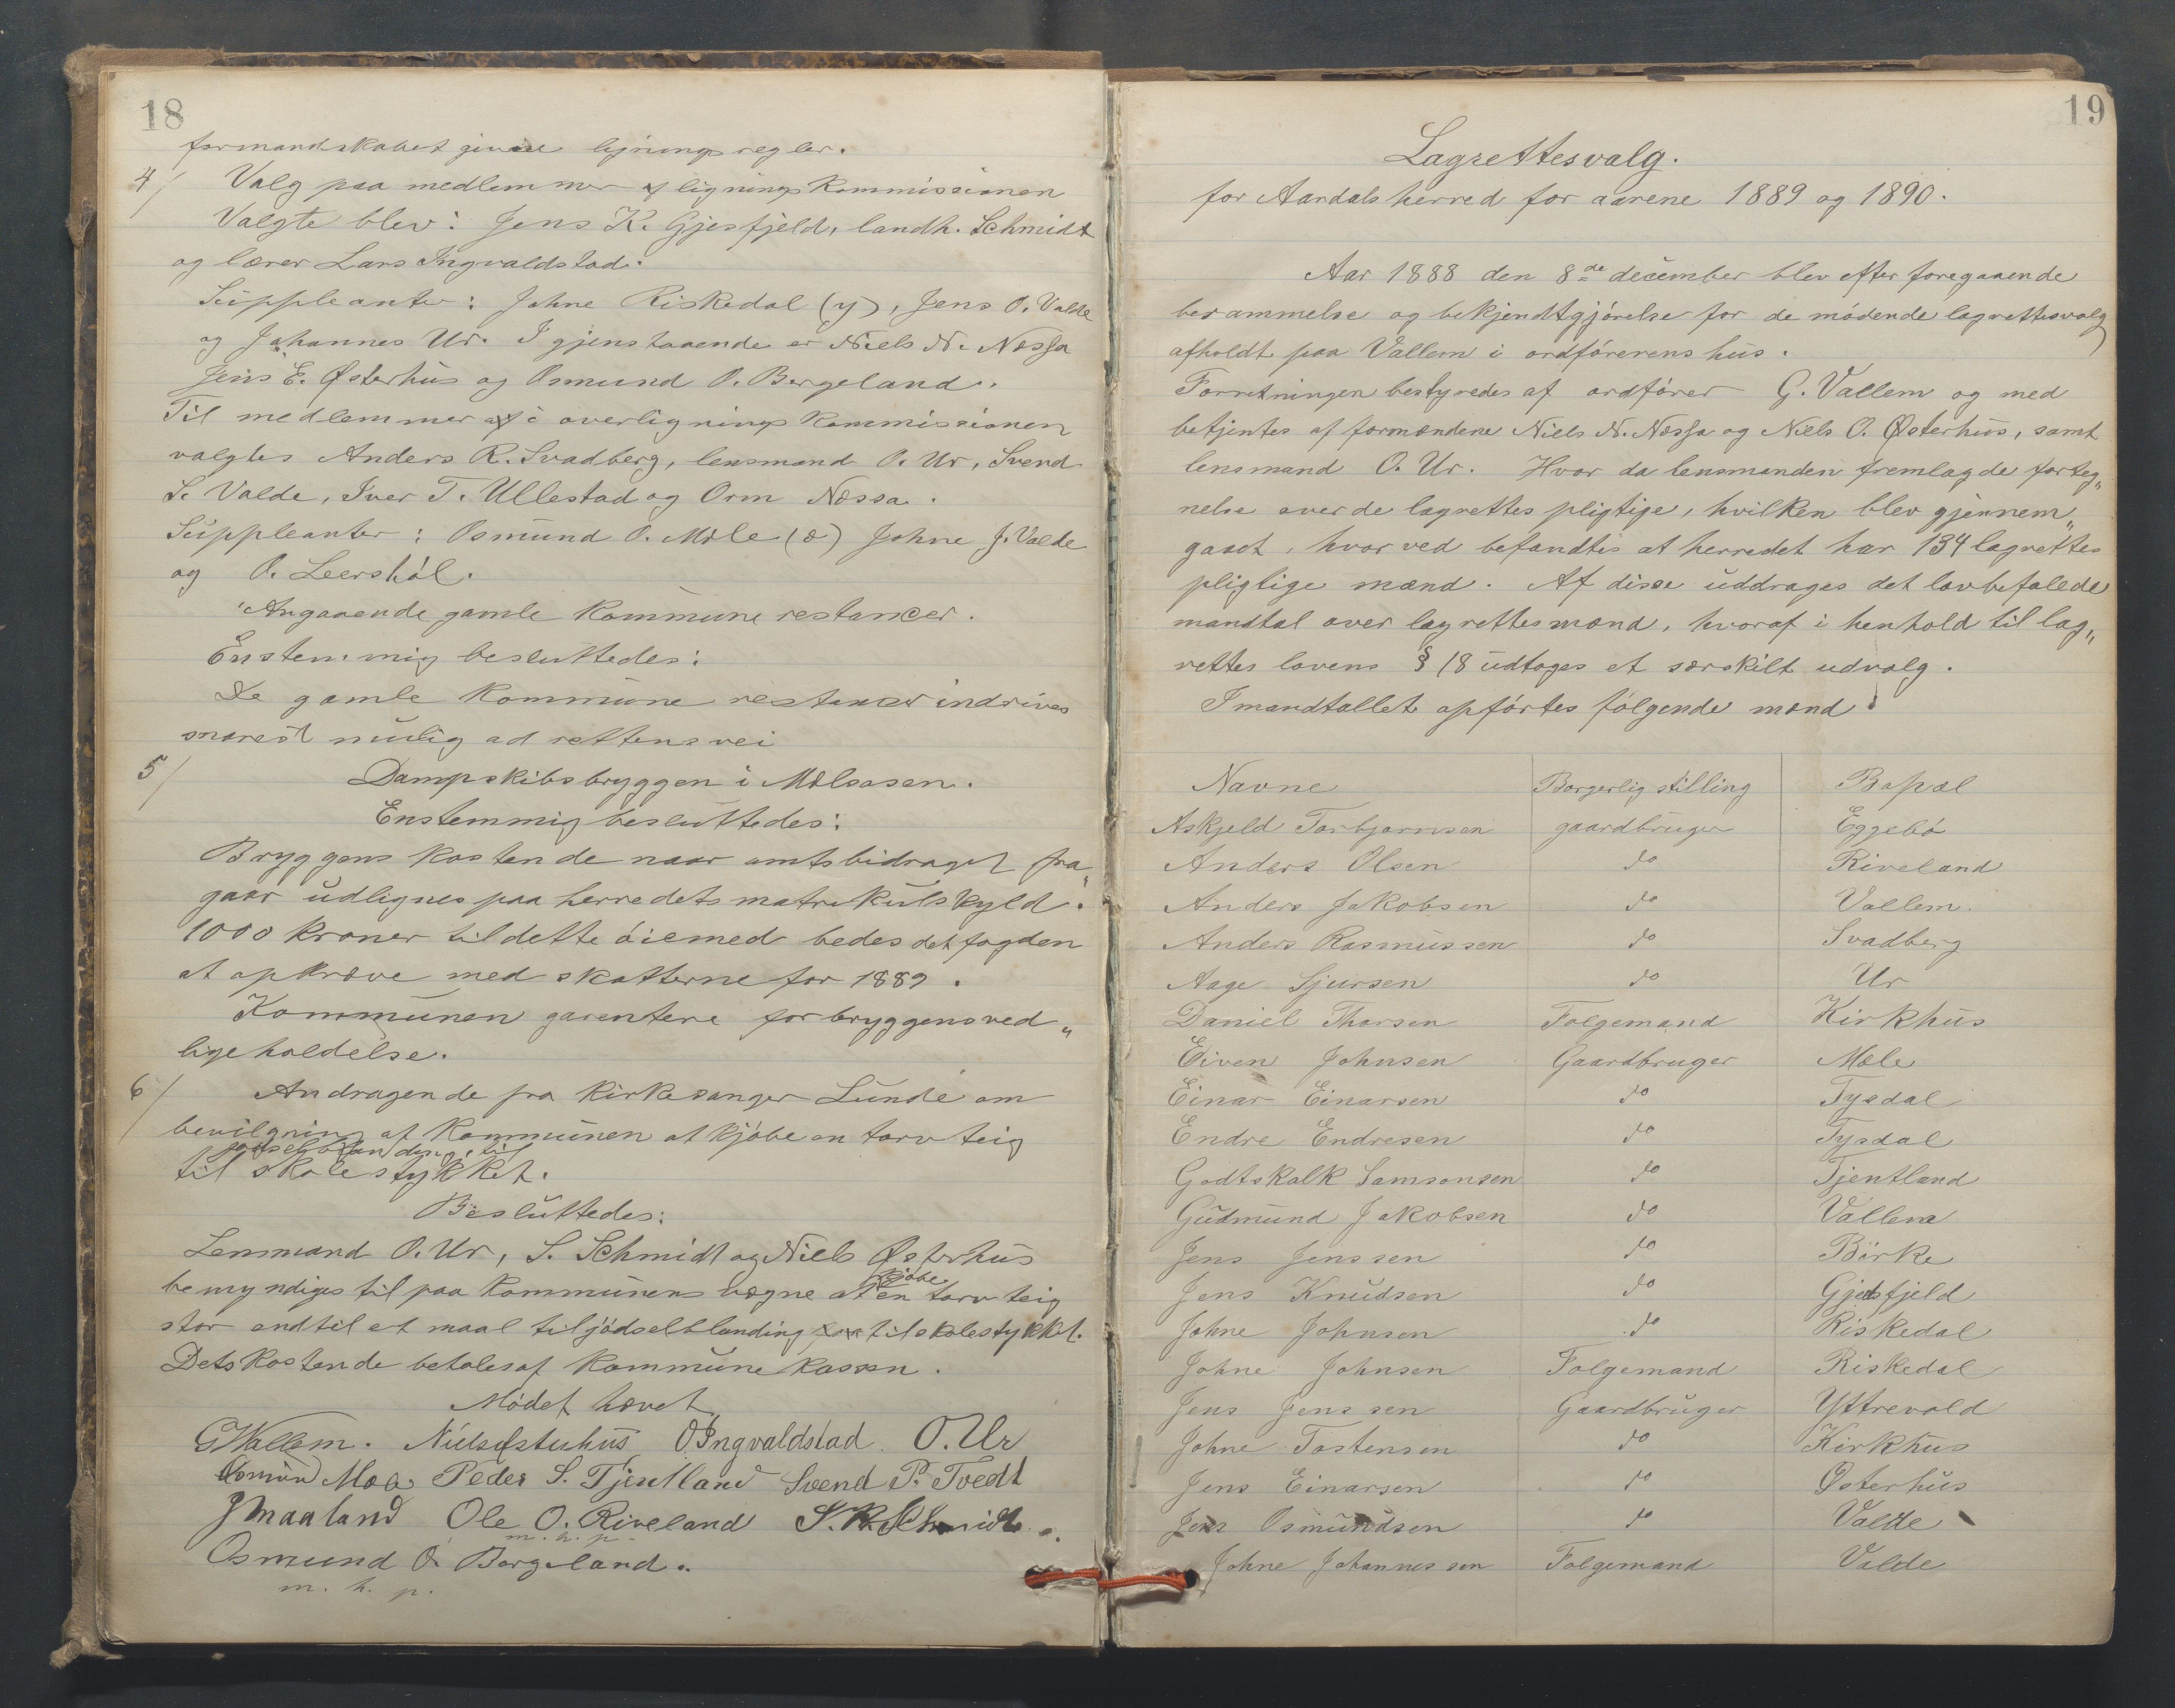 18
formandskabet givne ligningsregler.
4/ Valg paa medlemmer af ligningskommissionen
Valgte blev: Jens K. Gjesfjeld, landh. Schmidt
og lærer Lars Ingvaldstad.
Suppleanter: Johne Riskedal (y), Jens O. Valde
og Johannes Ur. I gjenstaaende er Niels N. Nessa
Jens E. Østerhus og Osmund O. Bergeland.
Til medlemmer af i overligningskommissionen
valgtes Anders R. Svadberg, lensmand O. Ur, Svend
S. Valde, Iver T. Ullestad og Orm Nessa.
Suppleanter: Osmund O. Mæle (æ) Johne J. Valde
og O. Leershól.
Angaaende gamle kommunerestancer.
Enstemmig besluttedes:
De gamle kommune restancer indrives
snarest mulig ad rettens vei
5/ Dampskibsbryggen i Mælsosen.
Enstemmig besluttedes:
Bryggens kostende naar amtsbidraget fra„
gaar udlignes paa herredets matrikulskyld.
1000 kroner til dette óiemed bedes det fogden
at opkræve med skatterne for 1889.
Kommunen garentere for bryggens ved„
ligeholdelse.
6/ Andragende fra kirkesanger Lunde om
bevilgning af kommunen at kjóbe en torvteig
jódselblanding til
til skolestykket.
Besluttedes:
Lensmand O. Ur, S. Schmidt og Niels Østerhus
kjóbe
bemyndiges til paa kommunens vegne at en torvteig
stor indtil et maal til jódselblanding til skolestykket.
Dets kostende betales af kommunekassen.
Módet hævet
G Vallem. Niels Østerhus O Ingvaldstad. O. Ur
Osmun Moa Peder S. Tjentland Svend P. Tvedt
J Maaland Ole O. Riveland S. R. Schmidt.
m. h. p.
Osmund O. Bergeland.
m. h. p.
19
Lagrettesvalg.
for Aardals herred for aarene 1889 og 1890.
Aar 1888 den 8de december blev efter foregaaende
berammelse og bekjendtgjórelse for de módende lagrettesvalg
afholdt paa Vallem i ordfórerens hus.
Forretningen bestyredes af ordfórer G. Vallem og med
betjentes af formændene Niels N. Nessa og Niels O. Østerhus, samt
lensmand O. Ur. Hvor da lensmanden fremlagde forteg„
nelse over de lagrettes pligtige, hvilken blev gjennem„
gaaet, hvorved befandtes at herredet har 134 lagrettes
pligtige mænd. Af disse uddrages det lovbefalede
mandtal over lagrettesmænd, hvoraf i henhold til lag„
rettes lovens § 18 udtoges et særskilt udvalg.
I mandtallet opfórtes fólgende mænd:
Navne Borgerlig stilling Bopæl
Askjeld Torbjørnsen gaardbruger Eggebó
Anders Olsen do Riveland
Anders Jakobsen do Vallem.
Anders Rasmussen do Svadberg
Aage Sjursen do Ur
Daniel Thorsen Folgemand Kirkhus
Eiven Johnsen Gaardbruger Mæle
Einar Einarsen do Tysdal
Endre Endresen do Tysdal
Godtskalk Samsonsen do Tjentland
Gudmund Jakobsen do Vallem
Jens Jenssen do Birke
Jens Knudsen do Gjesfjeld
Johne Johnsen do Riskedal
Johne Johnsen Folgemand Riskedal
Jens Jenssen Gaardbruger Yttrevold
Johne Tostensen do Kirkhus
Jens Einarsen do Østerhus
Jens Osmundsen do Valde
Johne Johannessen Folgemand Valde